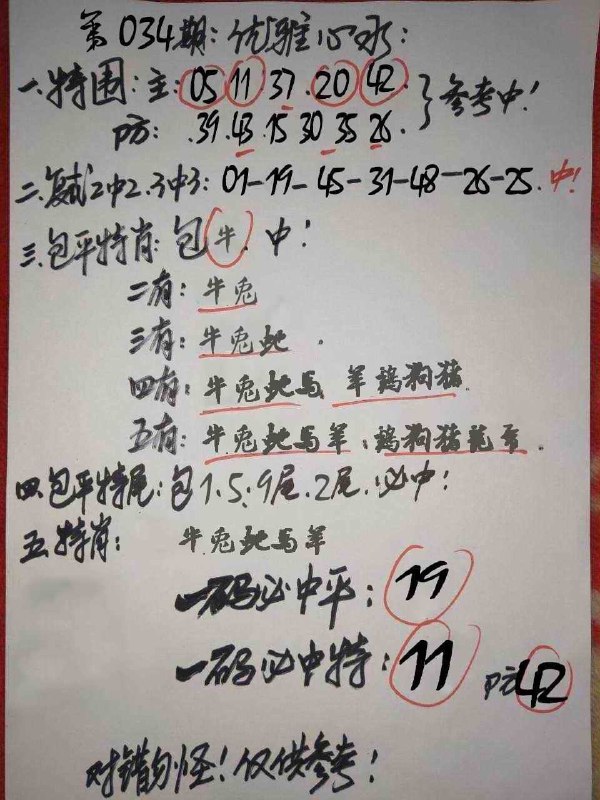 第034期:优雅心水:
一.特围:主:05 11 37.20 42.
防:.39.43.15 30 35 26. }参考中!
二.复式2中2.3中3:01-19-45-31-48-26-25.中!
三.包平特肖:包牛.中!
二有:牛兔
三有:牛兔蛇.
四有:牛兔蛇马 羊鸡狗猪.
五有:牛兔蛇马羊、鸡狗猪龙
四.包平特尾:包1.5.9尾.2尾.必中!
五.特肖: 牛兔蛇马羊
一码必中平:19
一码必中特:11 防42
对错勿怪!仅供参考!